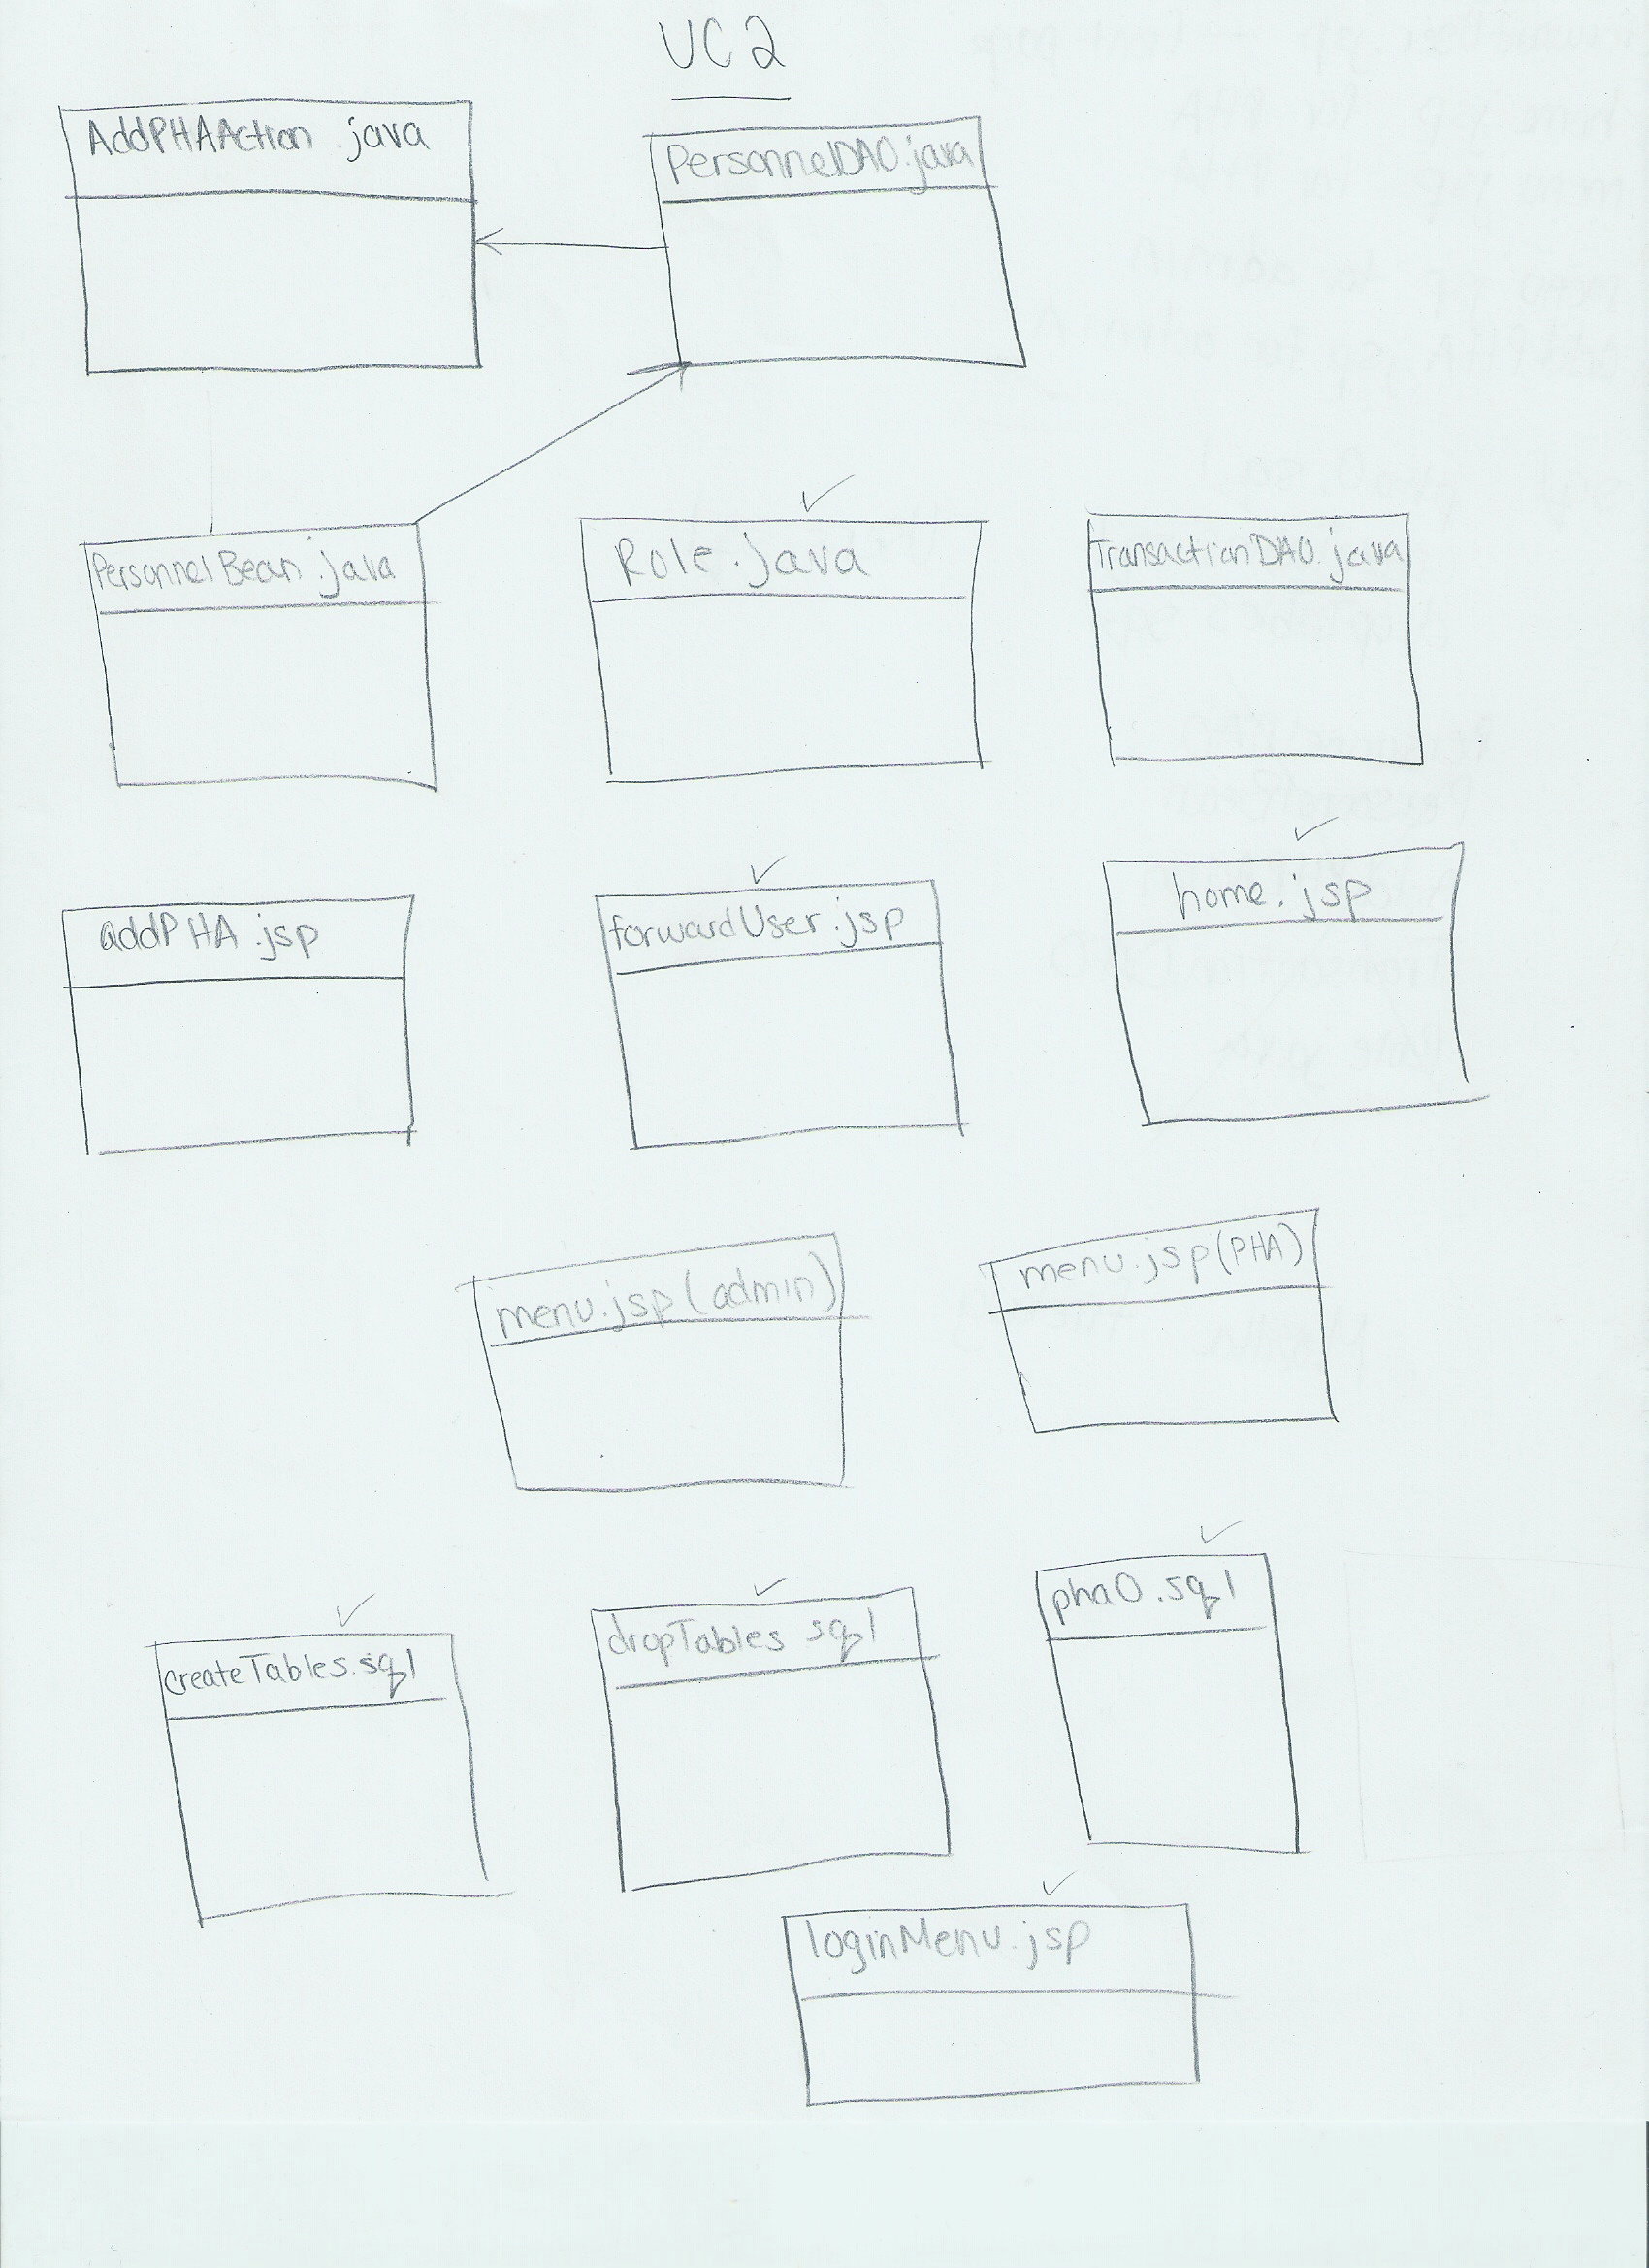 UC2
AddPHAAction.java
PersonnelDAO.java
PersonnelBean.java
Role.java
TransactionDAO.java
addPHA.jsp
forwardUser.jsp
home.jsp
menu.jsp(admin)
menu.jsp(PHA)
createTables.sql
dropTables sql
pha0.sql
loginMenu.jsp